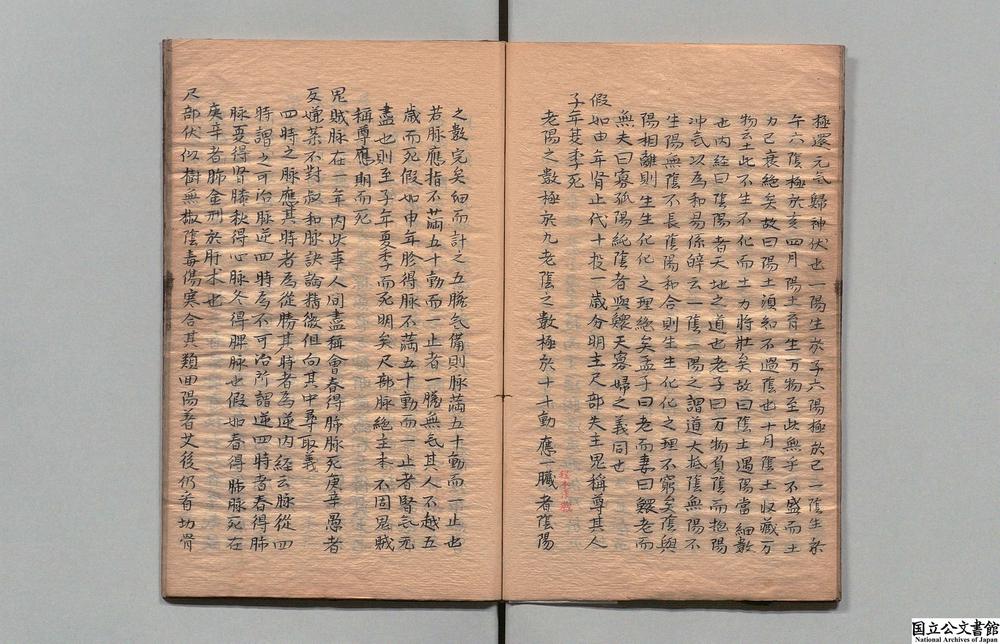 極還元气歸神伏也一陽生於子六陽極於巳一陰生於
午六陰極於亥四月陽土育生万物至此無乎不盛而土
力已衰絶矣故曰陽土須知不過陰也十月陰土收藏万
物至此不生不化而土力將壯矣故曰陰土遇陽當細数
也内經曰陰陽者天地之道也老子曰万物負陰而抱陽
冲气以為和易係辞云一陰一陽之謂道大抵陰無陽不
生陽無陰不長陰陽和合則生生化化之理不窮矣陰與
陽相離則生生化化之理絶矣孟子曰老而無妻曰鰥老而
無夫曰寡孤陽純陰者與鰥夫寡婦之義同也
假如申年肾止代十投一歳分明主尺部失主鬼稱尊其人
子年其季死
老陽之数極於九老陰之数極於十十動應一臓者陰陽
之数完矣細而計之五臓气備則脉滿五十動而一止也
若脉應指不滿五十動而一止者一臓無气其人不越五
歳而死假如申年診得脉不滿五十動而一止者腎气先
盡也則至子年夏季而死明矣尺部脉絶主本不固鬼賊
稱尊應期而死
鬼賊脉在一年内此事人間盡稱會春得肺脉死庚辛愚者
反嫌某不對叔和脉訣論精微但向其中尋取義
四時之脉應其時者為從勝其時者為逆内經云脉從四
時謂之可治脉逆四時為不可治所謂逆四時者春得肺
脉夏得腎脉秋得心脉冬得脾脉也假如春得肺脉死在
庚辛者肺金刑於肝木也
尺部伏似樹無椒陰毒傷寒合其類回陽著艾後仍看切骨
国立公文書館
National Archives of Japan